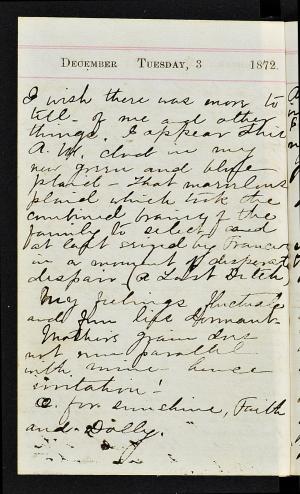 December Tuesday, 3 1872.
I wish there was more to
tell - of me and other
things. I appear this
A.M. clad in my
new green and blue
plaid - that marvelous
plaid which took the
combined brains of the
family to select and
at last seized by Frances
in a moment of desperate
despair. (a Last Ditch)
My feelings fluctuate
and life dormant.
Mothers grain does
not run parallel
with mine - hence
irritation!
O. for sunshine, Faith
and Dolly.